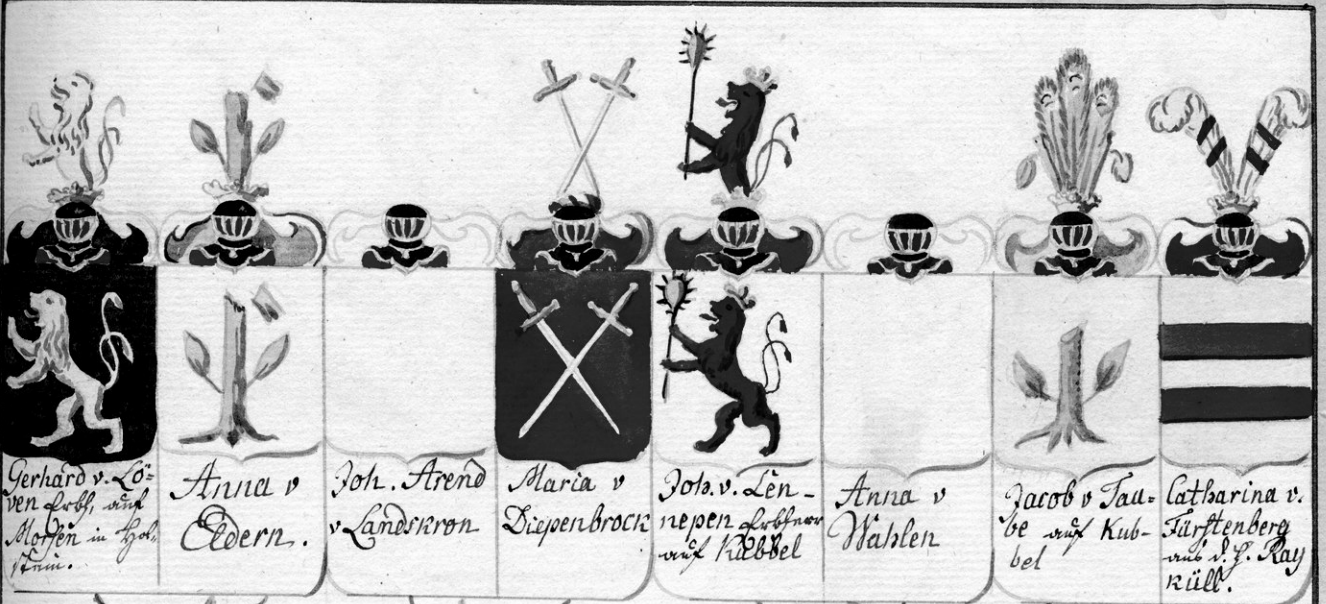 Gerhard v. Lö-
ven Erbh. auf
Morsen in Hol-
stein.
Anna v
Eldern.
Joh. Arend
v Landskron
Maria v
Diepenbrock
Joh. v. Len-
nepen Erbherr
auf Kabbel
Anna v
Wahlen
Jacob v Tau-
be auf Kub-
bel
Catharina v.
Fürstenberg
aus d. H. Ray
küll.